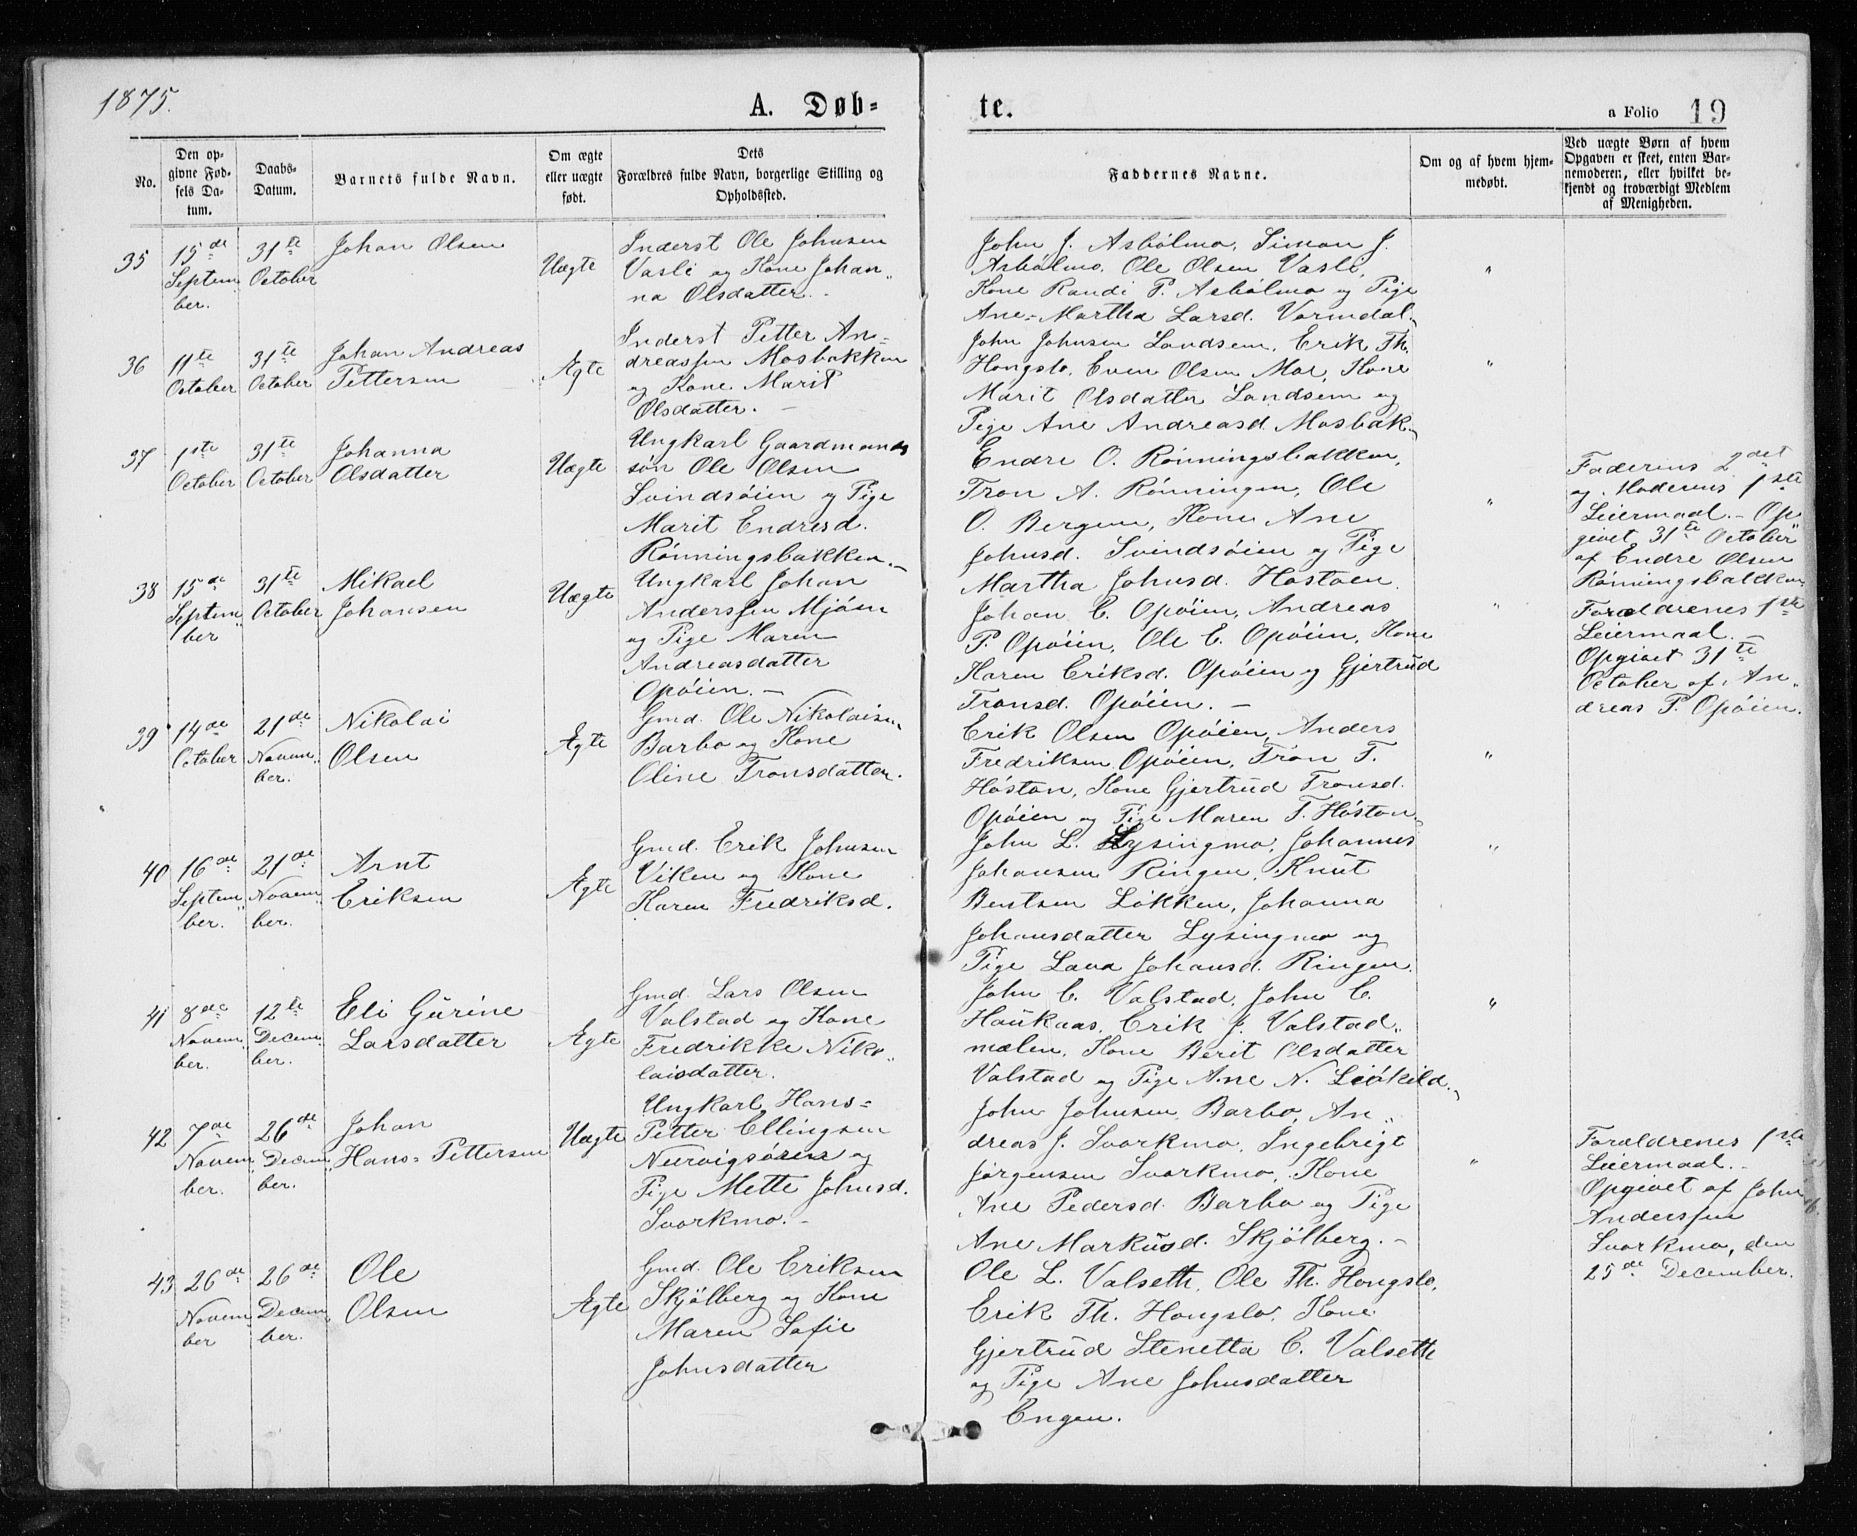 1875.
A. Døb-
te.
a Folio 19
No.
Den op-
givne Fød-
sels Da-
tum.
Daabs-
Datum.
Barnets fulde Navn.
Om ægte
eller uægte
født.
Dets
Forældres fulde Navn, borgerlige Stilling og
Opholdssted.
Faddernes Navne.
Om og af hvem hjem-
medøbt.
Ved uægte Børn af hvem
Opgaven er skeet, enten Bar-
nemoderen, eller hvilket be-
kjendt og troværdigt Medlem
af Menigheden.
35
15de
Septem
ber.
31te
October
Johan Olsen
Uægte
Inderst Ole Johnsen
Vasli og Kone Johan„
na Olsdatter.
John J. Asbølmo, Simon J.
Asbølmo, Ole Olsen Vasli,
Kone Randi P. Asbølmo og Pige
Ane-Martha Larsd. Vormdal.
"
36
11te
October
31te
October
Johan Andreas
Pettersen
Ægte
Inderst Petter An-
dreassen Mosbakken
og Kone Marit
Olsdatter. –
John Johnsen Landsem, Erik Th.
Hongslo, Even Olsen Moe, Kone
Marit Olsdatter Landsem og
Pige Ane Andreasd. Mosbak„
"
37
1ste
October
31te
October
Johanna
Olsdatter
Uægte
Ungkarl Gaardmands
søn Ole Olsen
Svindsøien og Pige
Marit Endresd.
Rønningsbakken. –
Endre O. Rønningsbakken,
Tron A. Rønningen, Ole
O. Bergem, Kone Ane
Johnsd. Svindsøien og Pige
Martha Johnsd. Høstoen.
"
Faderens 2det
og Moderens 1ste
Leiermaal. – Op
givet 31te October
af Endre Olsen
Rønningsbakken
38
15de
Septem
ber
31te
October
Mikael
Johansen
Uægte
Ungkarl Johan
Anderssen Mjøen
og Pige Maren
Andreasdatter
Opøien. –
Johan E. Opøien, Andreas
P. Opøien, Ole E. Opøien, Kone
Karen Eriksd. Opøien og Gjertrud
Tronsd. Opøien. –
"
Forældrenes 1ste
Leiermaal. –
Opgivet 31te
October af An„
dreas P. Opøien.
39
14de
October
21de
Novem„
ber.
Nikolai
Olsen
Ægte
Gmd. Ole Nikolaisen
Barbo og Kone
Oline Tronsdatter.
Erik Olsen Opøien, Anders
Fredriksen Opøien, Tron T.
Høston, Kone Gjertrud Tronsd.
Opøien og Pige Maren T. Høston.
"
40
16de
Septem„
ber.
21de
Novem„
ber.
Arnt
Eriksen
Ægte
Gmd. Erik Johnsen
Viken og Kone
Karen Fredriksd.
John L. Lysingmo, Johannes
Johansen Ringen, Knut
Bentsen Løkken, Johanna
Johansdatter Lysingmo og
Pige Lava Johansd. Ringen.
"
41
8de
Novem„
ber.
12te
Decem„
ber.
Eli Gurine
Larsdatter
Ægte
Gmd. Lars Olsen
Valstad og Kone
Fredrikke Niko„
laisdatter.
John E. Valstad, John E.
Haukaas, Erik J. Valstad„
mælen, Kone Berit Olsdatter
Valstad og Pige Ane N.
"
42
7de
Novem
ber.
26de
Decem„
ber.
Johan
Hans-Pettersen
Uægte
Ungkarl Hans-
Petter Ellingsen
og
Pige Mette Johnsd.
Svorkmo. –
John Johnsen Barbo, An„
dreas J. Svorkmo, Ingebrigt
Jørgensen Svorkmo, Kone
Ane Pedersd. Barbo og Pige
Ane Markusd. Skjølberg. –
"
Forældrenes 1ste
Leiermaal. –
Opgivet af John
Anderssen
Svorkmo, den
25de December.
43
26de
Novem„
ber
26de
Decem„
ber.
Ole
Olsen
Ægte
Gmd. Ole Eriksen
Skjølberg og Kone
Maren Sofie
Johnsdatter
Ole L. Valseth, Ole Th. Hongslo,
Erik Th. Hongslo, Kone
Gjertrud Stenetta E. Valseth
og Pige Ane Johnsdatter
Engen.